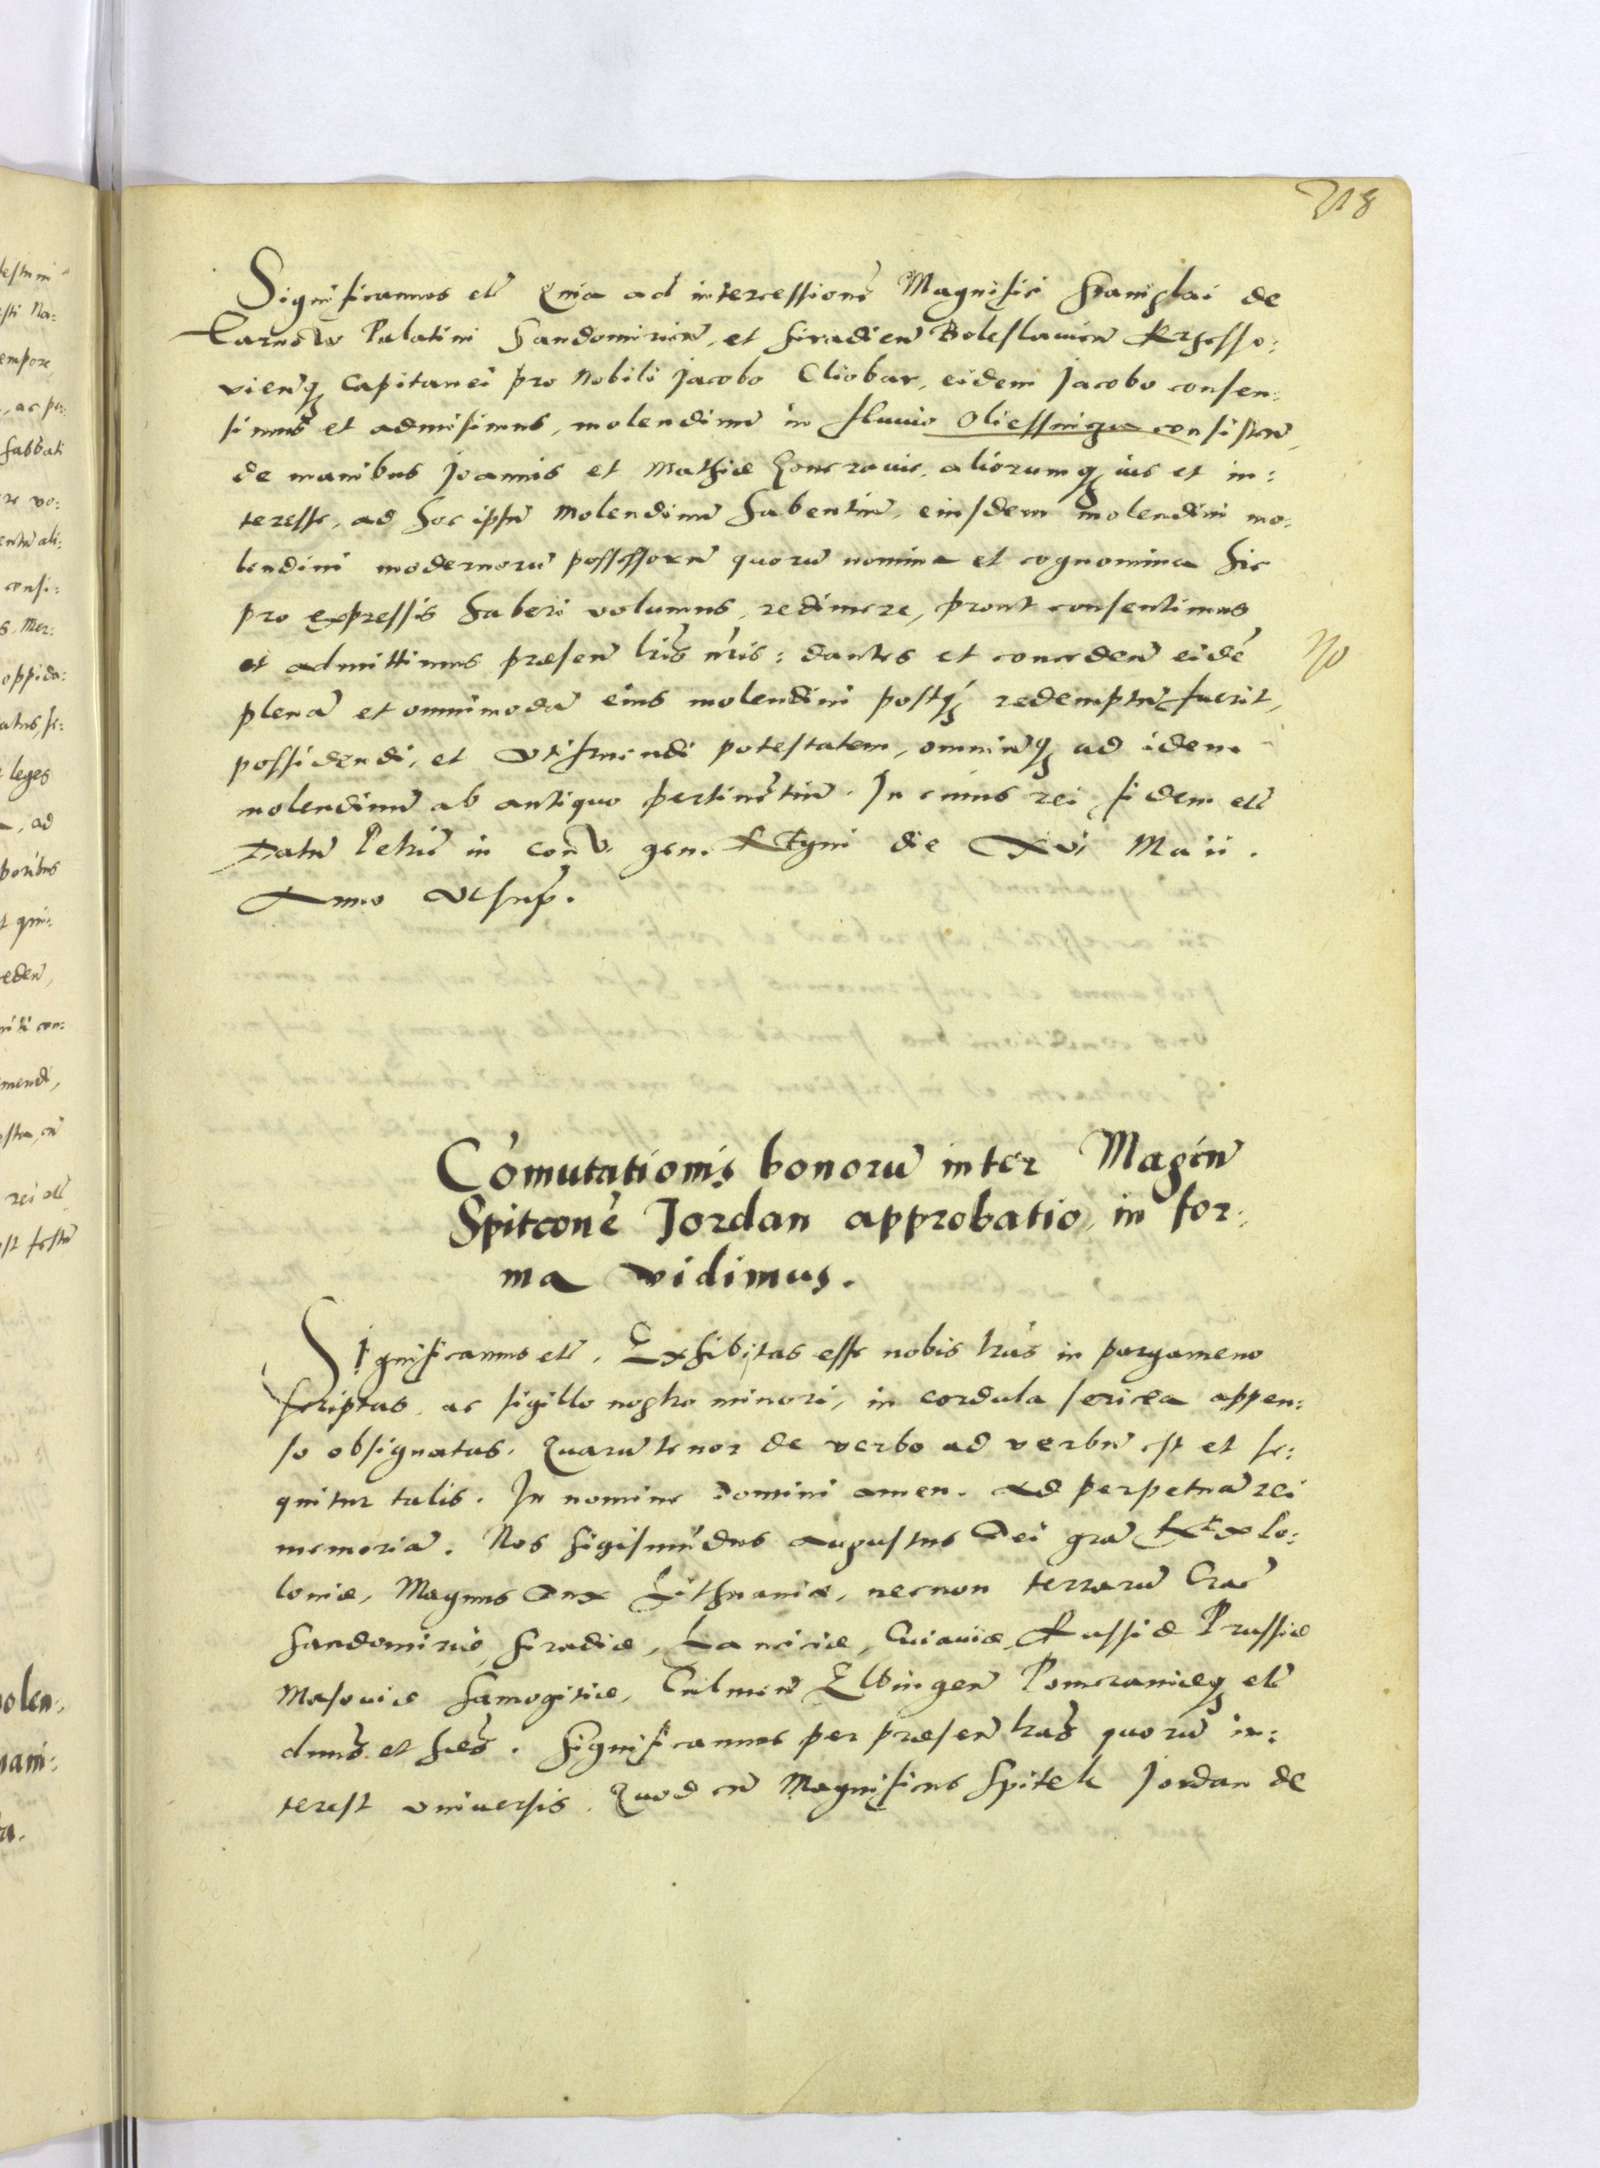 218
Significamus etc̃ Quia ad intercessionẽ Magnifici Stanislai de
Tarnow Palatini Sandomirieñ, et Siradieñ Boleslavieñ Krzesso:
vieñq3 Capitanei pro Nobili Jacobo Cliobar, eidem Jacobo consen:
simus et admisimus, molendinũ in fluvio Oliessnicza consisteñ,
de manibus Joannis et Mathiæ aliorumq3 ius et in:
teresse, ad hoc ipsũ Molendinũ habentiũ, eiusdem molendini mo:
lendini modernorũ possessorũ quorũ nomina et cognomina hic
pro expressis haberi volumus, redimere, prout consentimus
et admittimus præseñ lr̃is nr̃is: dantes et concedeñ eidẽ
plenã et omnimodã eius molendini postq3 redemptũ fuerit,
possidendi, et utifruendi potestatem, omniũq3 ad idem
molendinũ ab antiquo pertinẽtiũ. In cuius rei fidem etc̃
Datũ Petric̃ in conṽ. gen. Regni die XVI Maii.
Anno Utsup̃.
No
Cõmutationis bonorũ inter Magcũ
Spitconẽ Jordan approbatio, in for:
ma vidimus.
Significamus etc̃. Exhibitas esse nobis lr̃as in pargameno
scriptas, ac sigillo nostro minori, in cordula sericea appen:
so obsignatas. Quarũ tenor de verbo ad verbũ est et se:
quitur talis. In nomine Domini amen. Ad perpetuã rei
memoriã. Nos Sigismũdus Augustus Dei gr̃a Rex Po:
loniæ, Magnus Dux Lithuaniæ, necnon terrarũ Crac̃
Sandomiriæ, Siradiæ, Lanciciæ, Cuiaviæ, Russiæ Prussiæ
Masoviæ Samogitiæ, Culmeñ Elbingeñ Pomeraniæq3 etc̃
dñus et hæs. Significamus per præseñ lr̃as quorũ in:
terest universis. Quod cũ Magnificus Spitek Jordan de